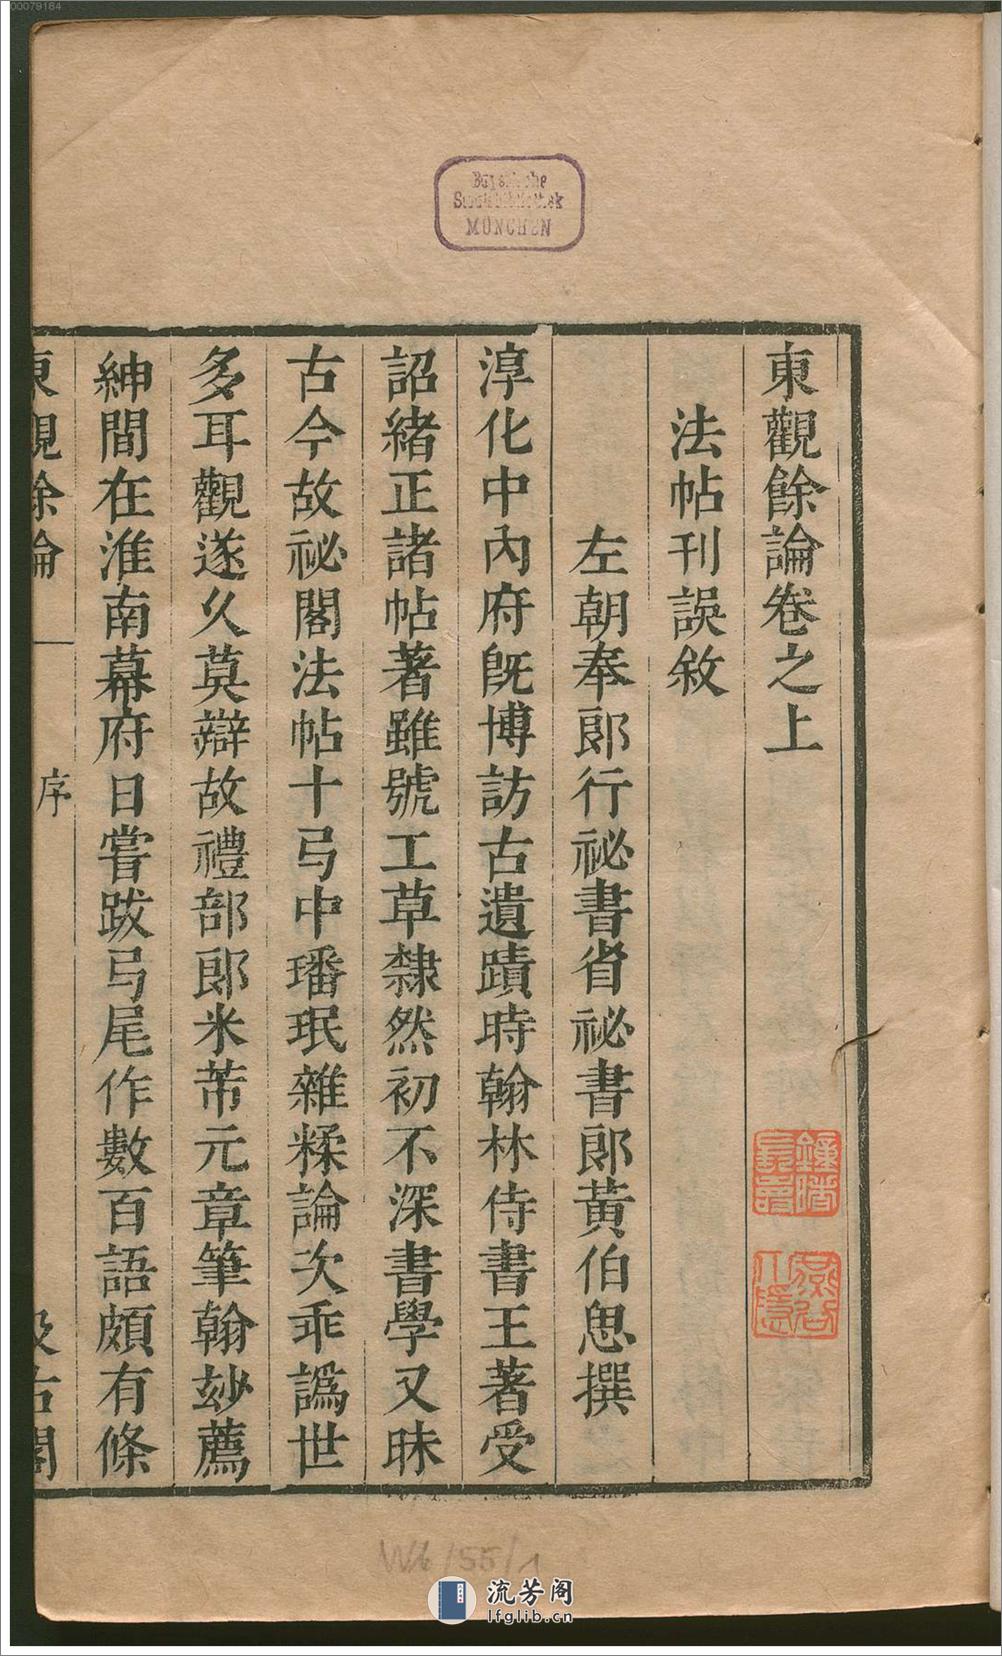 00079184
Bayerische
Staatsbibliothek
MÜNCHEN
東觀餘論卷之上
法帖刊誤敘
左朝奉郎行祕書省祕書郎黃伯思撰
淳化中內府旣博訪古遺蹟時翰林侍書王著受
詔緒正諸帖著雖號工草隸然初不深書學又昧
古今故祕閣法帖十弓中璠珉雜糅論次乖譌世
多耳觀遂久莫辯故禮部郎米芾元章筆翰妙薦
紳間在淮南幕府日嘗跋弓尾作數百語頗有條
東觀餘論
序
汲古閣
流芳阁
lfglib.cn